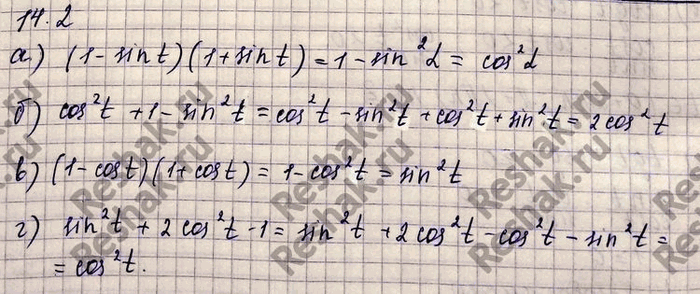 14.2
а) (1-sin t)(1+sin t) = 1-sin²α = cos²α
б) cos²t +1-sin²t = cos²t -sin²t +cos²t +sin²t = 2cos²t
в) (1-cost)(1+cost) = 1-cos²t = sin²t
г) sin²t + 2 cos²t -1 = sin²t +2 cos²t -cos²t - sin²t =
= cos²t.
Reshak.ru
Reshak.ru
Reshak.ru
Reshak.ru
Reshak.ru
Reshak.ru